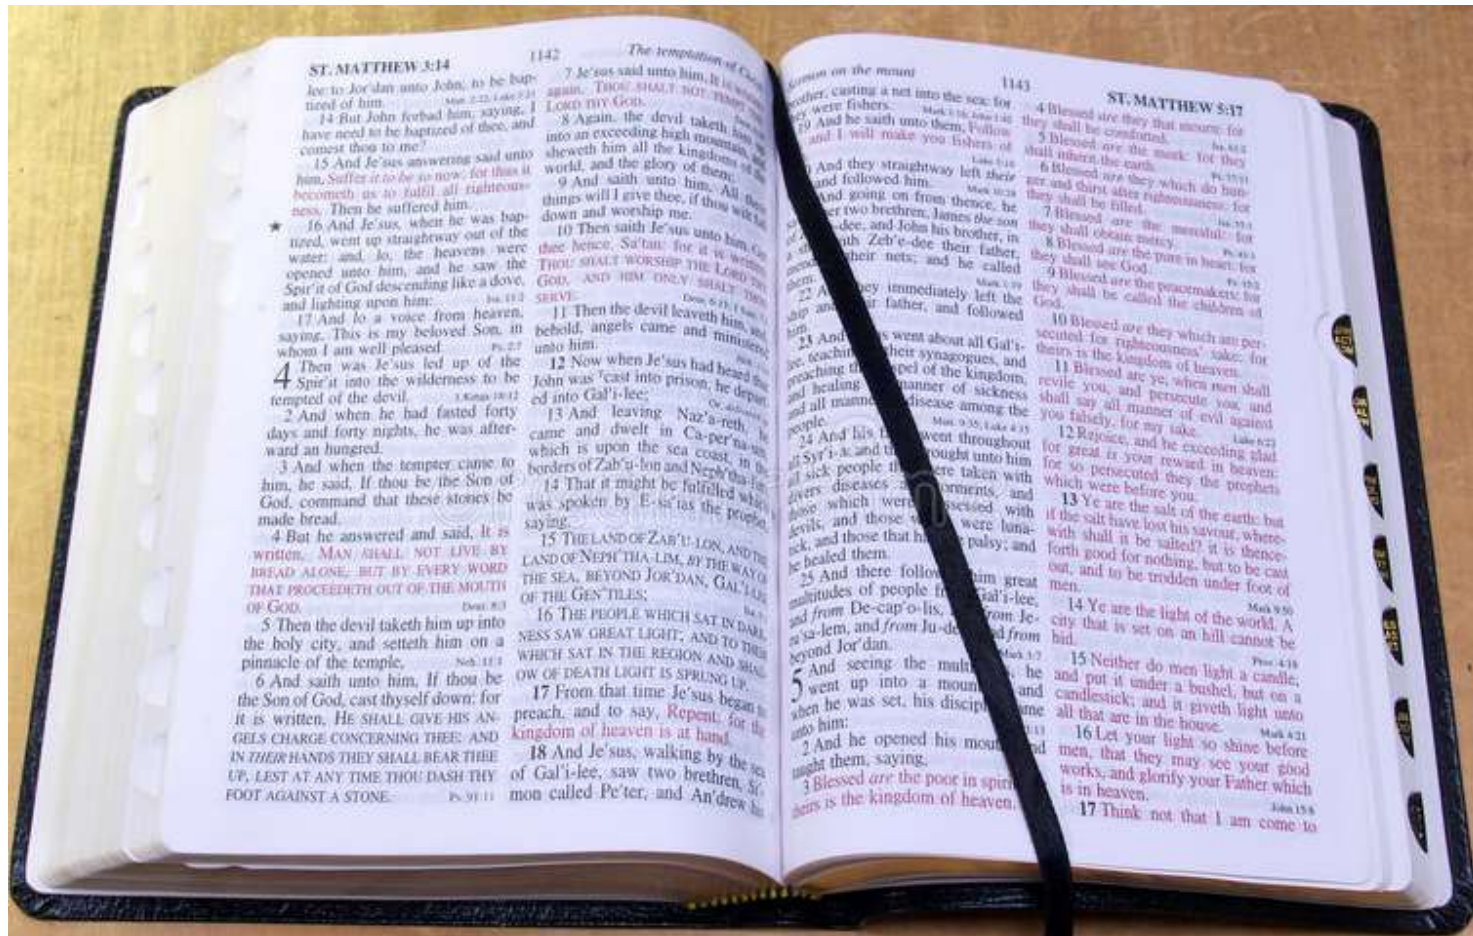 ST. MATTHEW 3:14
1142
The temptation of
lee to Jor'dan unto John, to be bap-
tized of him.
14 But John forbad him, saying, I
have need to be baptized of thee, and
comest thou to me?
15 And Je'sus answering said unto
him, Suffer it to be so now: for thus it
becometh us to fulfil all righteous-
ness. Then he suffered him.
★ 16 And Je'sus, when he was bap-
tized, went up straightway out of the
water: and, lo, the heavens were
opened unto him, and he saw the
Spir'it of God descending like a dove,
and lighting upon him: Isa. 11:2
17 And lo a voice from heaven,
saying, This is my beloved Son, in
whom I am well pleased. Ps. 2:7
4 Then was Je'sus led up of the
Spir'it into the wilderness to be
tempted of the devil. 1 Kings 18:12
2 And when he had fasted forty
days and forty nights, he was after-
ward an hungred.
3 And when the tempter came to
him, he said, If thou be the Son of
God, command that these stones be
made bread.
4 But he answered and said, It is
written, MAN SHALL NOT LIVE BY
BREAD ALONE, BUT BY EVERY WORD
THAT PROCEEDETH OUT OF THE MOUTH
OF GOD. Deut. 8:3
5 Then the devil taketh him up into
the holy city, and setteth him on a
pinnacle of the temple, Neh. 11:1
6 And saith unto him, If thou be
the Son of God, cast thyself down: for
it is written, HE SHALL GIVE HIS AN-
GELS CHARGE CONCERNING THEE: AND
IN THEIR HANDS THEY SHALL BEAR THEE
UP, LEST AT ANY TIME THOU DASH THY
FOOT AGAINST A STONE. Ps. 91:11
7 Je'sus said unto him, It is
again, THOU SHALT NOT TEMPT
LORD THY GOD.
8 Again, the devil taketh him
into an exceeding high mountain, and
sheweth him all the kingdoms of the
world, and the glory of them;
9 And saith unto him, All these
things will I give thee, if thou wilt fall
down and worship me.
10 Then saith Je'sus unto him,
thee hence, Sa'tan: for it is written,
THOU SHALT WORSHIP THE LORD THY
GOD, AND HIM ONLY SHALT THOU
SERVE.
11 Then the devil leaveth him, and,
behold, angels came and ministered
unto him.
12 Now when Je'sus had heard that
John was cast into prison, he depart-
ed into Gal'i-lee;
13 And leaving Naz'a-reth, he
came and dwelt in Ca-per'na-um,
which is upon the sea coast, in the
borders of Zab'u-lon and Neph'tha-lim:
14 That it might be fulfilled which
was spoken by E-sa'ias the prophet,
saying,
15 THE LAND OF ZAB'U-LON, AND THE
LAND OF NEPH'THA-LIM, BY THE WAY OF
THE SEA, BEYOND JOR'DAN, GAL'I-LEE
OF THE GEN'TILES;
16 THE PEOPLE WHICH SAT IN DARK-
NESS SAW GREAT LIGHT; AND TO THEM
WHICH SAT IN THE REGION AND SHAD-
OW OF DEATH LIGHT IS SPRUNG UP.
17 From that time Je'sus began to
preach, and to say, Repent: for the
kingdom of heaven is at hand.
18 And Je'sus, walking by the sea
of Gal'i-lee, saw two brethren, Si'-
mon called Pe'ter, and An'drew his
Sermon on the mount
1143
ST. MATTHEW 5:17
brother, casting a net into the sea: for
they were fishers.
19 And he saith unto them, Follow
and I will make you fishers of
And they straightway left their
and followed him.
And going on from thence, he
other two brethren, James the son
dee, and John his brother, in
Zeb'e-dee their father,
their nets; and he called
them.
22 And they immediately left the
ship and their father, and followed
him.
23 And went about all Gal'i-
lee, teaching their synagogues, and
preaching the gospel of the kingdom,
and healing manner of sickness
and all manner disease among the
people. Matt. 9:35; Luke 4:15
24 And his went throughout
all Syr'i-a: and they brought unto him
all sick people that were taken with
divers diseases torments, and
those which were possessed with
devils, and those were luna-
tick, and those that had palsy; and
he healed them.
25 And there followed him great
multitudes of people from Gal'i-lee,
and from De-cap'o-lis, from Je-
ru'sa-lem, and from Ju-de and from
beyond Jor'dan.
5 And seeing the he
went up into a and
when he was set, his came
unto him:
2 And he opened his mouth, and
taught them, saying,
3 Blessed are the poor in spirit:
theirs is the kingdom of heaven.
4 Blessed are they that mourn: for
they shall be comforted.
5 Blessed are the meek: for they
shall inherit the earth.
6 Blessed are they which do hun-
ger and thirst after righteousness: for
they shall be filled.
7 Blessed are the merciful: for
they shall obtain mercy.
8 Blessed are the pure in heart: for
they shall see God.
9 Blessed are the peacemakers: for
they shall be called the children of
God.
10 Blessed are they which are per-
secuted for righteousness' sake: for
theirs is the kingdom of heaven.
11 Blessed are ye, when men shall
revile you, and persecute you, and
shall say all manner of evil against
you falsely, for my sake. Luke 6:22
12 Rejoice, and be exceeding glad:
for great is your reward in heaven:
for so persecuted they the prophets
which were before you.
13 Ye are the salt of the earth: but
if the salt have lost his savour, where-
with shall it be salted? it is thence-
forth good for nothing, but to be cast
out, and to be trodden under foot of
men. Mark 9:50
14 Ye are the light of the world. A
city that is set on an hill cannot be
hid. Prov. 4:18
15 Neither do men light a candle,
and put it under a bushel, but on a
candlestick; and it giveth light unto
all that are in the house. Mark 4:21
16 Let your light so shine before
men, that they may see your good
works, and glorify your Father which
is in heaven. John 15:8
17 Think not that I am come to